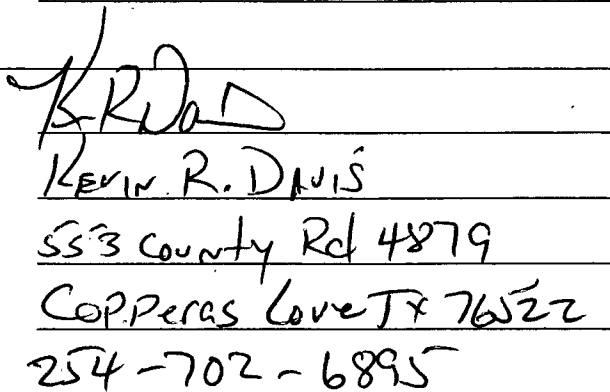 K R Davis
Kevin R. Davis
553 County Rd 4879
Copperas Cove Tx 76522
254-702-6895